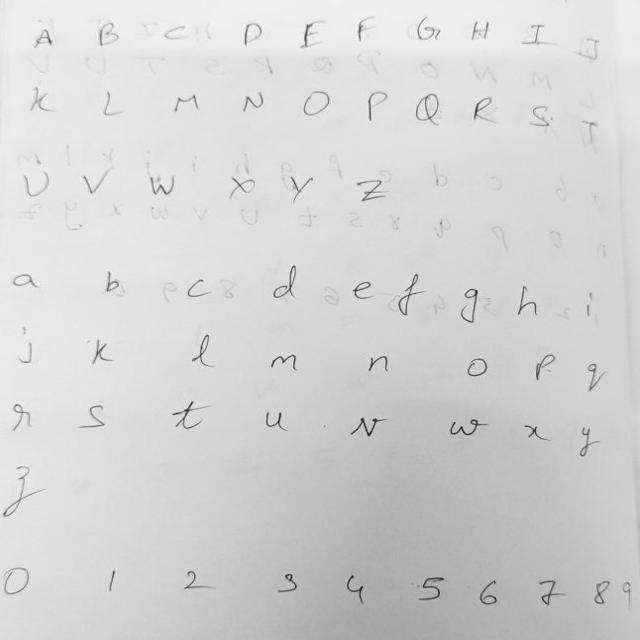 A B C D E F G H I J
K L M N O P Q R S T
U V W X Y Z
a b c d e f g h i
j k l m n o p q
r s t u v w x y
z
0 1 2 3 4 5 6 7 8 9